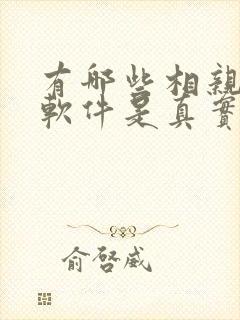 有哪些相親
軟件是真實
俞啓威